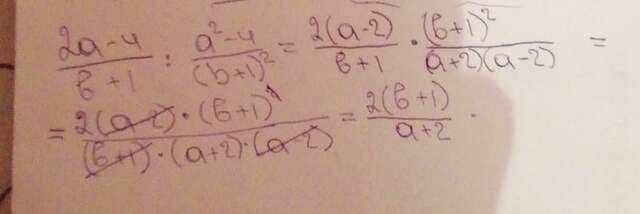 (2a-4)/(в+1) : (a²-4)/(b+1)² = 2(a-2)/(в+1) · (в+1)²/(a+2)(a-2) =
= 2(a-2)·(в+1)²/(в+1)·(a+2)·(a-2) = 2(в+1)/(a+2) .